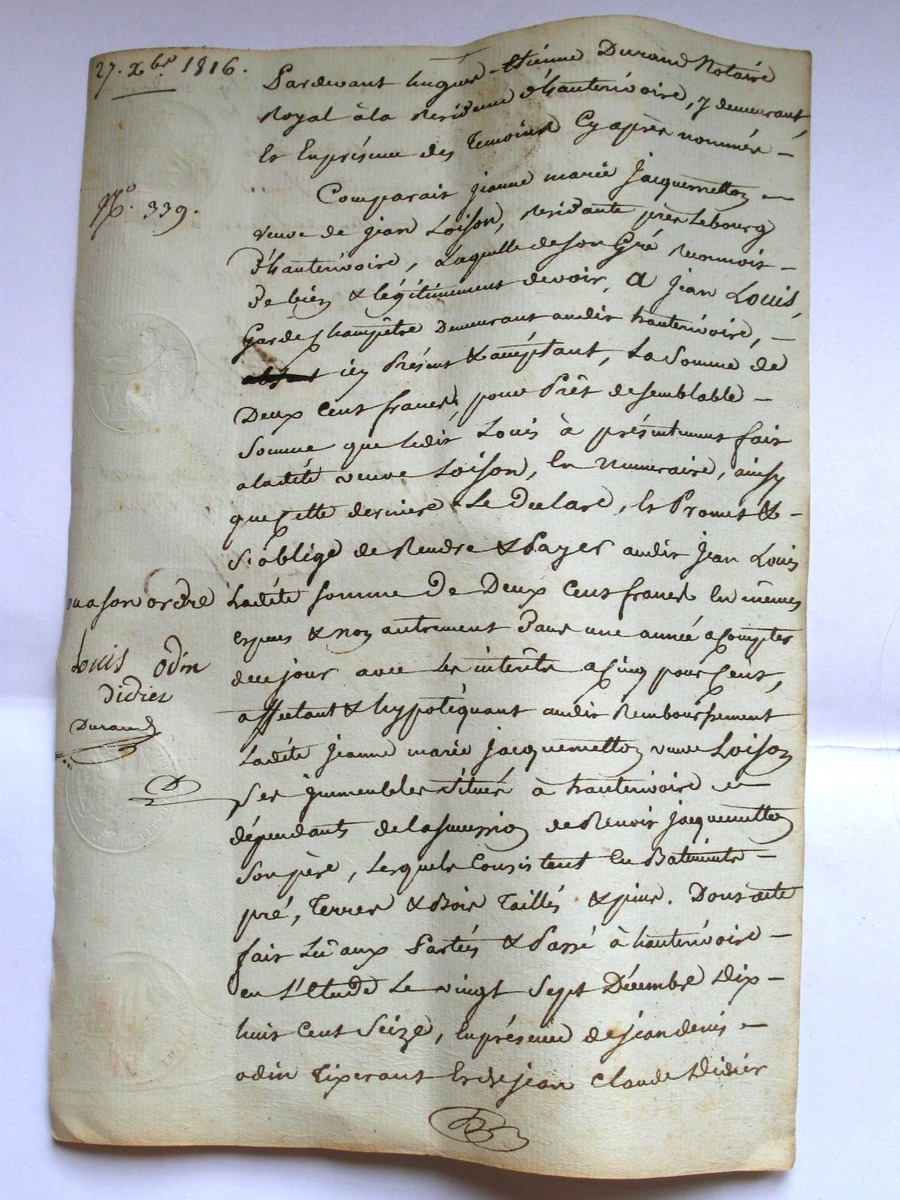 27. Xbre 1816.
Pardevant hugues-Etiénne Durand Notaire
Royal à la Residence d'hauterivoire, y demeurant,
Et En présence des Temoins Cy après nommés -
N.o 339.
Comparait jeanne marie jacquemetton -
veuve de jean Loison, residante près Lebourg
d'hauterivoire, Laquelle deson Gré Reconnoit -
De bien & légitimement devoir, a jean Louis,
Garde Champêtre Demeurant audit hauterivoire, -
absent icy Présent & acceptant, La Somme de
Deux Cent francs, pour Prêt desemblable -
Somme que ledit Louis à présentement fait
aladite veuve Loison, En Numeraire, ainsy
que Cette derniere Le Déclare, Et Promet & -
S'oblige de Rendre & Payer audit jean Louis
ou a son ordre
Ladite Somme De Deux Cent francs En mêmes
especes & non autrement Dans une année aCompter
dece jour avec les intérêts a Cinq pour Cent,
Louis odin
didier
Durand
affectant & hypotéquant audit Remboursement
Ladite jeanne marie jacquemetton veuve Loison
D
Ses immeubles Situés à hauterivoire et
dépendants delasuccession de Benoit jacquemetton
Son père, Lesquels Consistent En Batiments -
pré, Terres & Bois Taillés & pins. Dont acte
fait Lû aux Parties & Passé à hauterivoire -
en L'Etude Le vingt Sept Décembre Dix-
huit Cent Seize, En présence de jean denis -
odin Tixerant Et de jean Claude Didier